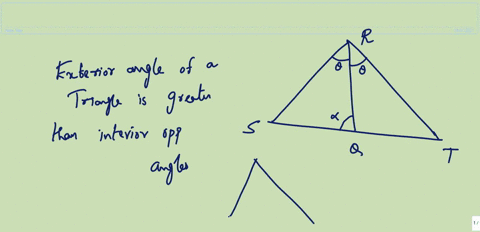 Exterior angle of a
Triangle is greater
than interior opp
angles
R
θ θ
S
α
Q
T